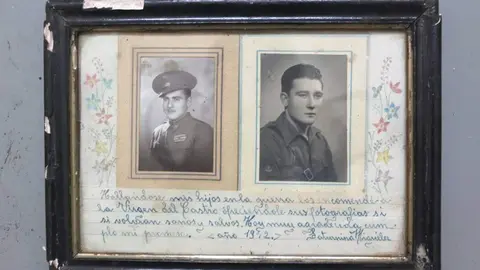 Hallandose mis hijos en la guerra los encomende a
la Virgen del Castro ofreciendole sus fotografias si
si volvian sanos y salvos. Hoy muy agradecida cum
plo mi promesa. año Saturnina